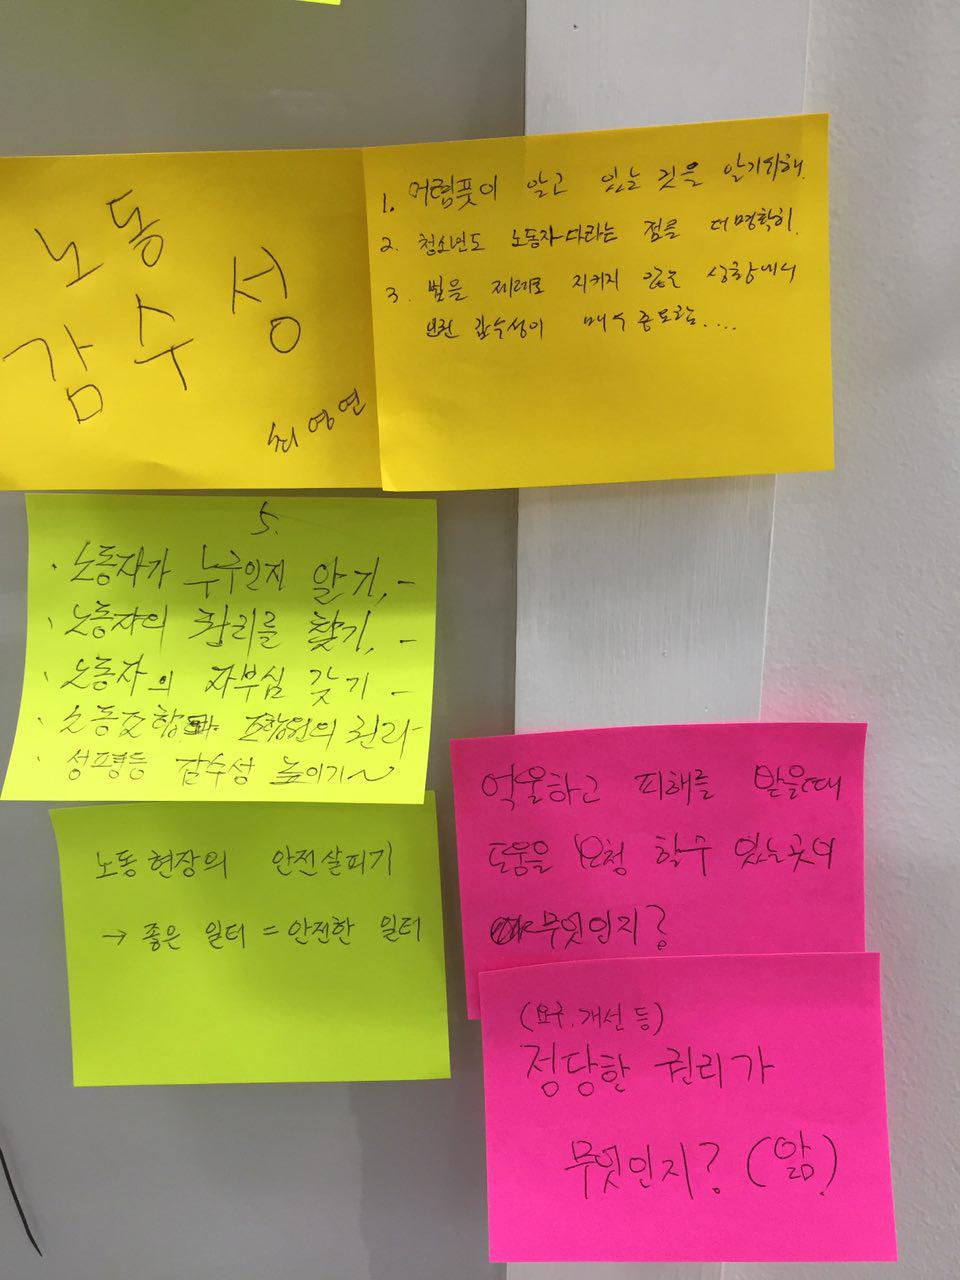 노동
감수성
최영연
1. 어렴풋이 알고 있는 것을 알기위해
2. 청소년도 노동자다라는 점을 더 명확히.
3. 법을 제대로 지키지 않는 상황에서
인권 감수성이 매우 중요함....
5.
· 노동자가 누구인지 알기, -
· 노동자의 권리를 찾기, -
· 노동자의 자부심 갖기 -
· 노동조합과 조합원의 권리-
· 성평등 감수성 높이기~
노동현장의 안전살피기
→ 좋은 일터 = 안전한 일터
억울하고 피해를 받을때
도움을 요청 할수 있는곳이
무엇인지?
(요구.개선 등)
정당한 권리가
무엇인지? (앎)